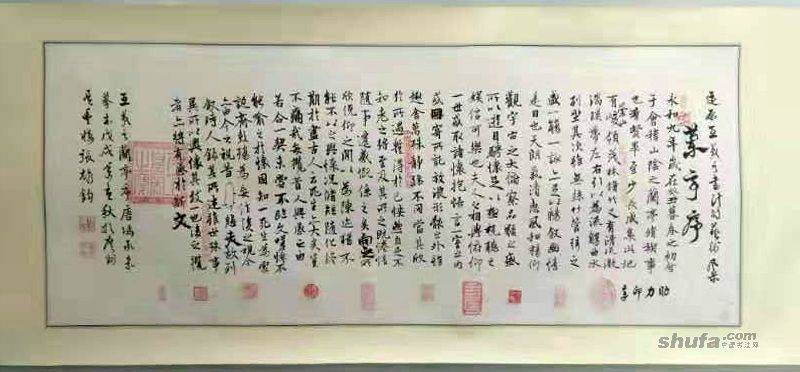 蘭亭序
永和九年歲在癸丑暮春之初會
于會稽山陰之蘭亭脩禊事
也羣賢畢至少長咸集此地
有崇山峻領茂林脩竹又有清流激
湍暎帶左右引以為流觴曲水
列坐其次雖無絲竹管弦之
盛一觴一詠亦足以暢敘幽情
是日也天朗氣清惠風和暢仰
觀宇宙之大俯察品類之盛
所以遊目騁懷足以極視聽之
娛信可樂也夫人之相與俯仰
一世或取諸懷抱悟言一室之內
或因寄所託放浪形骸之外雖
趣舍萬殊靜躁不同當其欣
於所遇暫得於己快然自足不
知老之將至及其所之既惓情
隨事遷感慨係之矣向之所
欣俛仰之閒以為陳迹猶不
能不以之興懷況脩短隨化終
期於盡古人云死生亦大矣豈
不痛哉每攬昔人興感之由
若合一契未嘗不臨文嗟悼不
能喻之於懷固知一死生為虛
誕齊彭殤為妄作後之視今
亦由今之視昔悲夫故列
敘時人錄其所述雖世殊事
異所以興懷其致一也後之攬
者亦將有感於斯文
王羲之蘭亭序唐馮承素
摹本戊戌
張雄鈞
助力
shufa.com
中国书法网